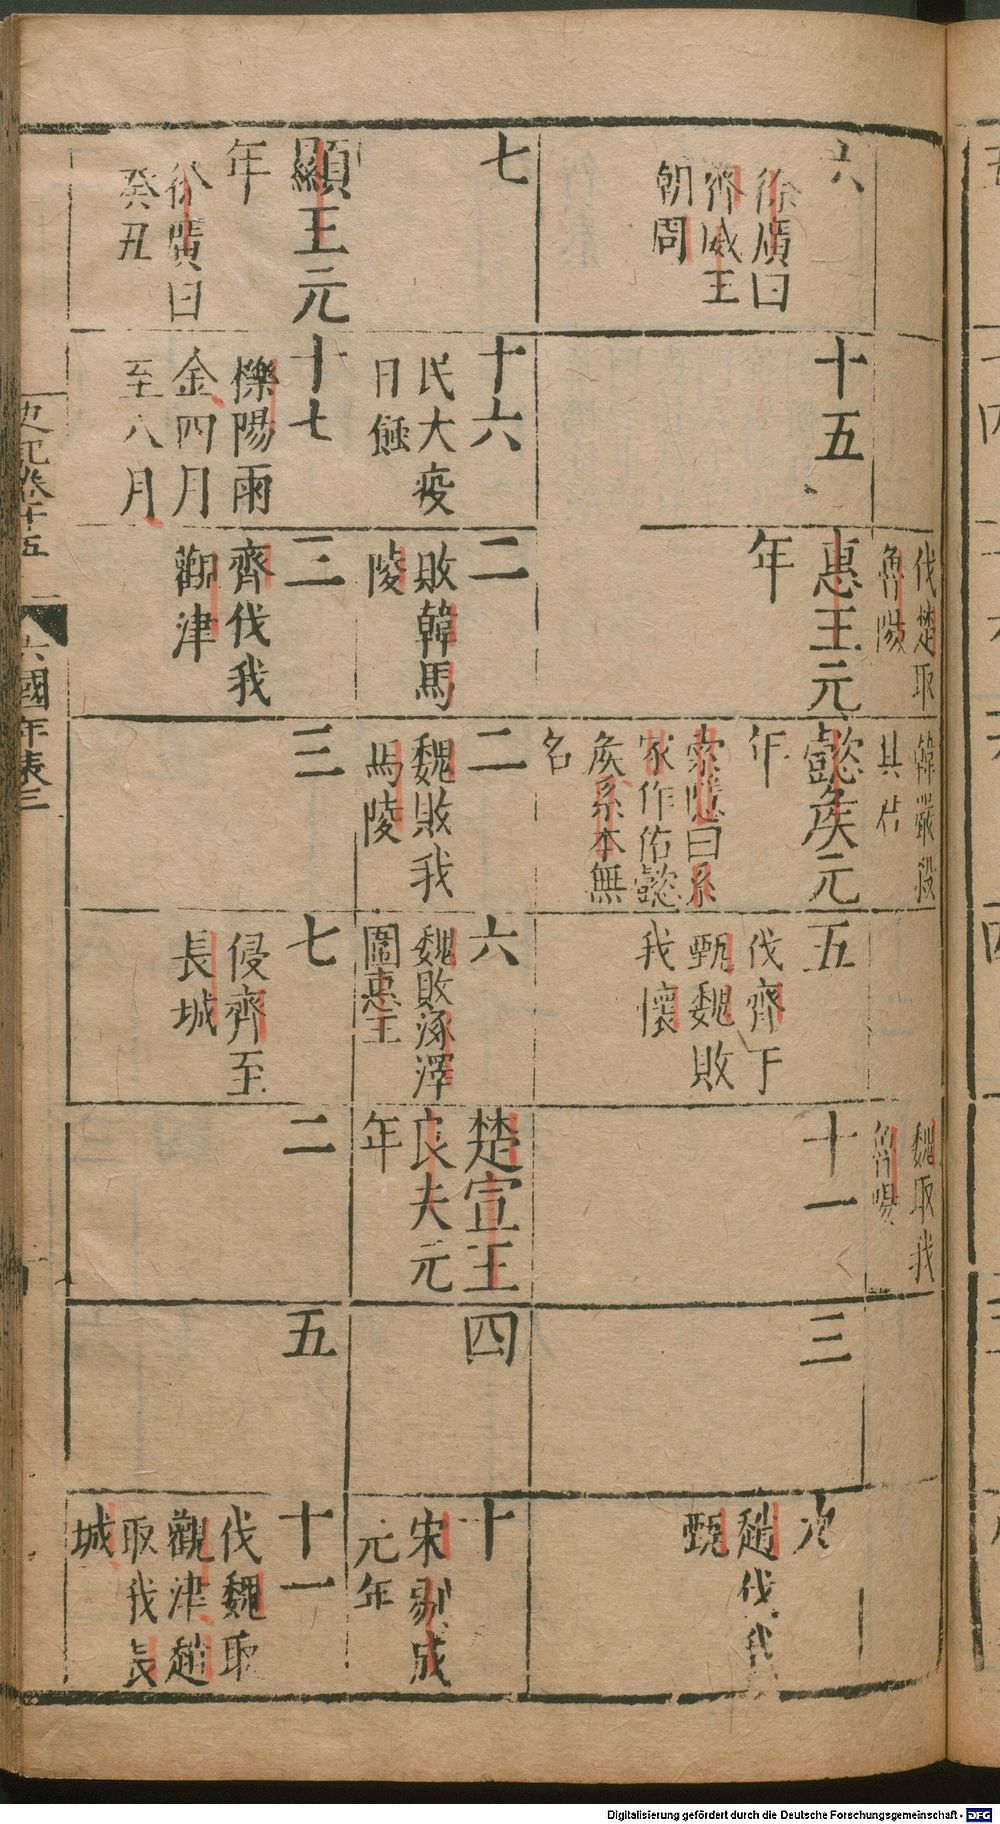 伐楚取
魯陽
韓嚴殺
其
魏取我
魯陽
六
徐廣曰
齊威王
朝周
十五
惠王元
年
懿侯元
年
索隱曰系
家作佑懿
侯系本無
名
五
伐齊于
甄魏敗
我懷
十一
三
九
趙伐我
甄
七
十六
民大疫
日蝕
二
敗韓馬
陵
二
魏敗我
馬陵
六
魏敗涿澤
圍惠王
楚宣王
良夫元
年
四
十
宋剔成
元年
顯王元
年
徐廣曰
癸丑
十七
櫟陽雨
金四月
至八月
三
齊伐我
觀津
三
七
侵齊至
長城
二
五
十一
伐魏取
觀津趙
取我長
城
史記卷十五 六國年表三
Digitalisierung gefördert durch die Deutsche Forschungsgemeinschaft - DFG